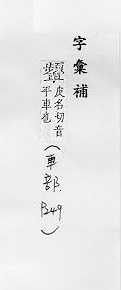 字彙補
皮名切音
平車也
(車部.